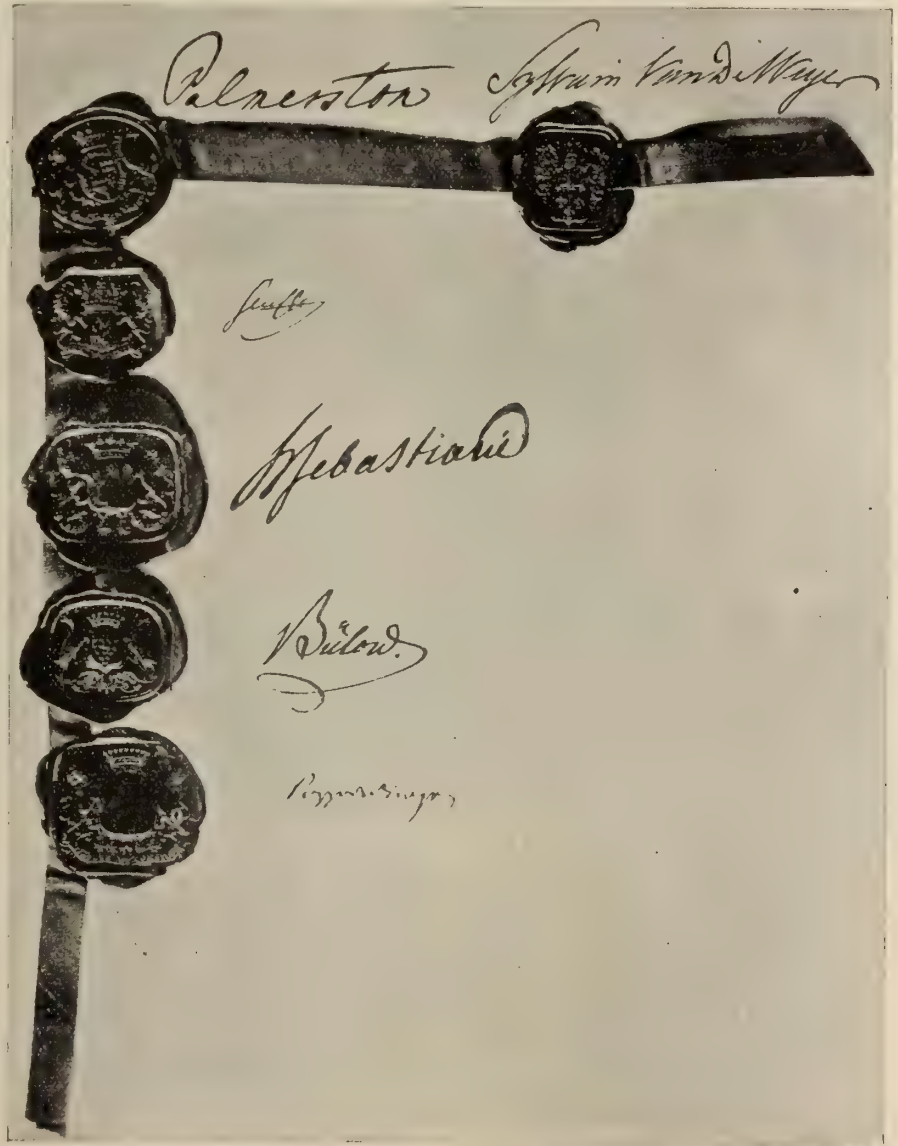 Palmerston Sylvain Van De Weyer
Senfft
H Sebastiani
Bülow.
Pozzo di Borgo